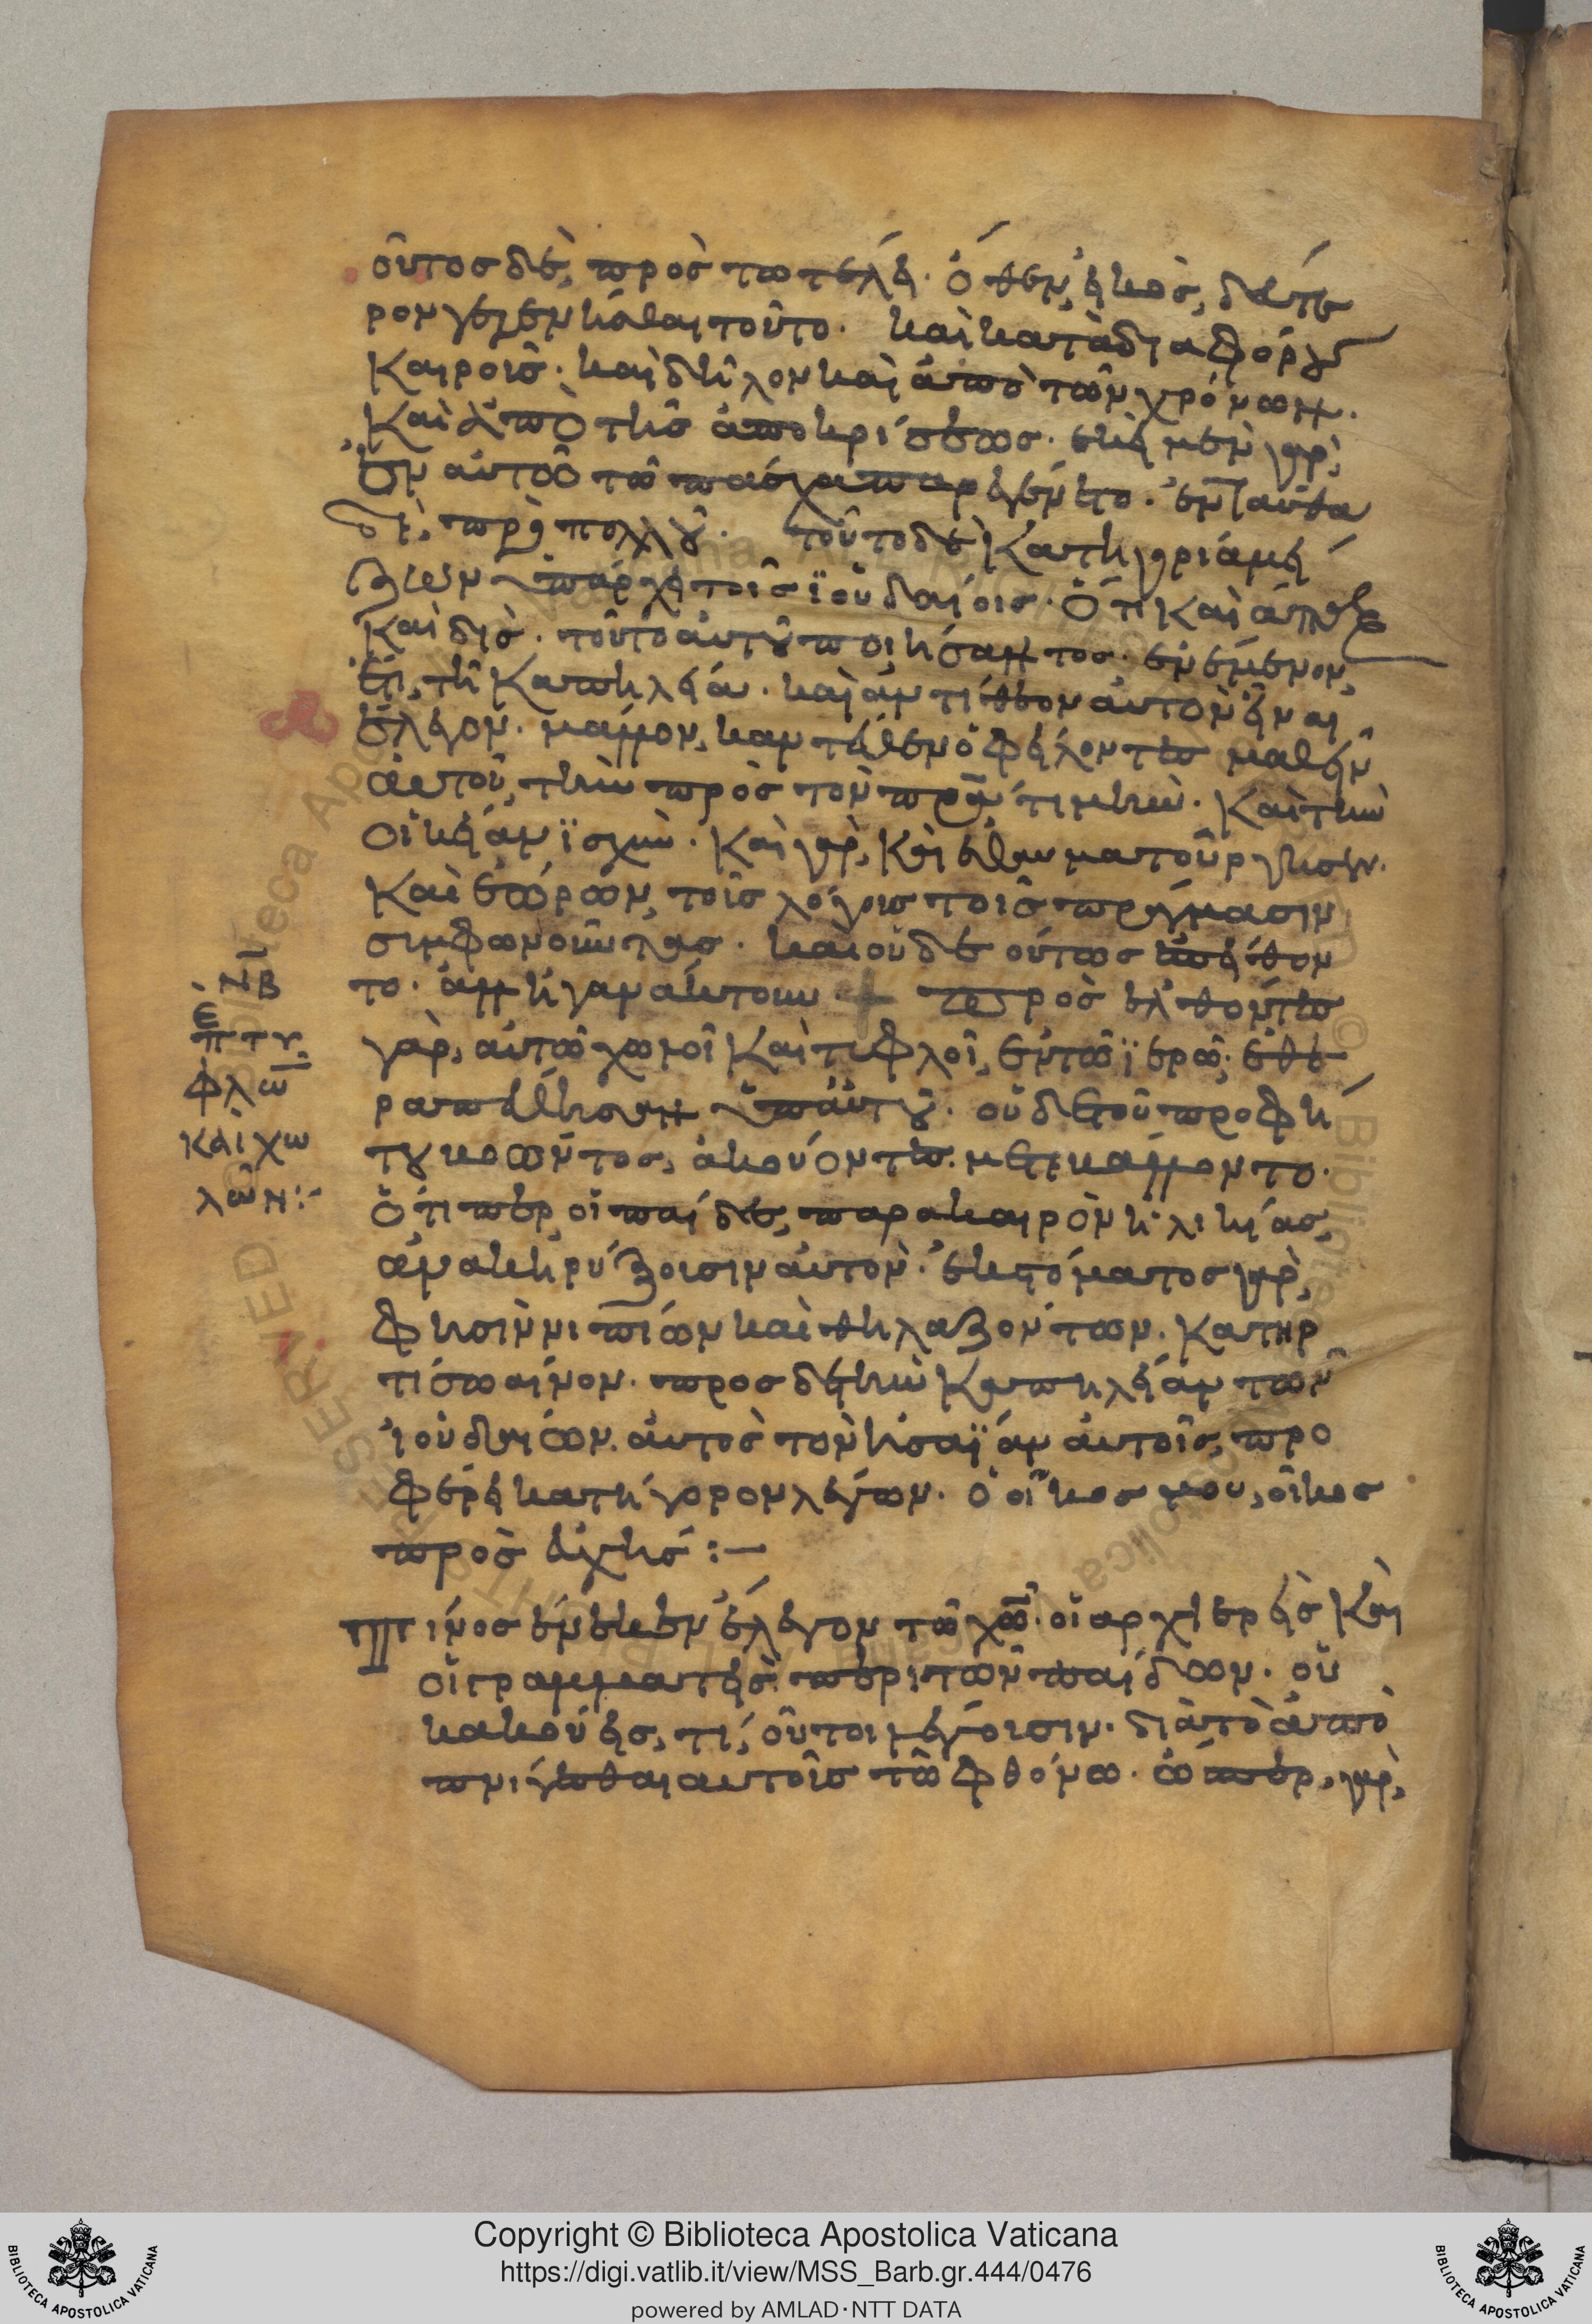 οὗτος δὲ, πρὸς τω τέλει. ὅθεν, εἰκὸς, δεύτε
ρον γεγενήσθαι τοῦτο. καὶ κατὰ διαφόρους
καιροῖς. καὶ δῆλον καὶ ἀπὸ τῶν χρόνων.
καὶ ἀπὸ τῆς ἀποκρίσεως. ἐκεῖ μὲν γὰρ,
ἐν αὐτοῦ τῶ πάσχα παρεγένετο. ἐνταῦθα
δὲ, πρὸ πολλοῦ. τοῦτο δὲ κατηγορία μεί
ζων ὑπάρχει τοῖς ϊουδαίοις. ὅτι καὶ ἅπαξ
καὶ δὶς. τοῦτο αὐτοῦ ποιήσαντος. ἐνέμενον,
ἔτι, τῆ καπηλεία. καὶ ἀντίθεον αὐτὸν εἶναι
ἔλεγον. μᾶλλον, κἀντεῦθεν ὀφείλοντες μαθεῖν
αὐτοῦ, τὴν πρὸς τὸν πρα, τιμὴν. καὶ τὴν
οἰκείαν ϊσχὺν. καὶ γὰρ, καὶ ἐθαυματούργησεν.
καὶ ἑώρων, τοῖς λόγοις τοῖς πράγμασιν
συμφωνοῦντας. καὶ οὐδὲ οὕτως ἐπείθον
το. ἀλλ' ἠγανάκτουν + προσελθόντες
γὰρ, αὐτῶ χωλοὶ καὶ τυφλοὶ, ἐν τῶ ϊερῶ. ἐθε
ραπεύθησαν ὑπ' αὐτοῦ. οὐδὲ τοῦ προφή
του βοῶντος, ἀκούοντες. μετεβάλλοντο.
ὅτιπερ οἱ παίδες, παρὰ καιρὸν ἡλικίας,
ἀνακηρύξουσιν αὐτὸν. ἐκ στόματος γὰρ,
φησὶν νιπίων καὶ θηλαζόντων. κατηρ
τίσω αίνον. πρὸς δὲ τὴν καπηλείαν τῶν
ἰουδαίων. αὐτὸς τὸν ἡσαϊαν αὐτοῖς, προ
φέρει κατήγορον λέγων. ὁ οἶκος μου, οἶκος
προσευχῆς :—
Τίνος ἕνεκεν ἔλεγον τῶ χω. οἱ αρχιερεῖς καὶ
οἱ γραμματεῖς. περὶ τῶν παίδων. οὐ
κ ακούεις, τί, οὗτοι λέγουσιν. διὰ τὸ ἀπο
πνιγεσθαι αυτοῖς τῶ φθόνω. ὥσπερ, γὰρ,
ΝΒ
ἐ
π τυ
φλῶ
καὶ χω
λῶν :-
Copyright © Biblioteca Apostolica Vaticana
https://digi.vatlib.it/view/MSS_Barb.gr.444/0476
powered by AMLAD·NTT DATA